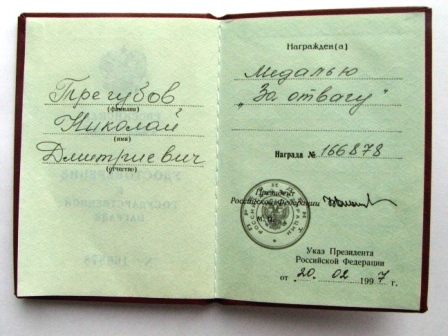 Трегубов
(фамилия)
Николай
(имя)
Дмитриевич
(отчество)
Награжден(а)
медалью
„За отвагу"
Награда № 166878
Президент
Российской Федерации
М. П.
Указ Президента
Российской Федерации
от 20. 02 1997 г.